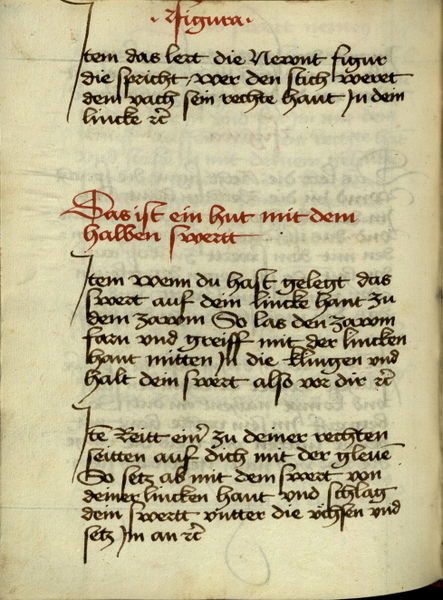 · Figura ·
Item das lert die Newnt figur
die spricht wer den stich weret
dem vach sein rechte hant In dein
lincke rc
Das ist ein hut mit dem
halben swertt
Item wenn du hast gelegt das
swert auf dein lincke hant zu
dem zawm So las den zawm
farn vnd greiff mit der lincken
hant mitten In die klingen vnd
halt dein swert also vor dir rc
Itē Reitt ein᷑ zu deiner rechten
seitten auf dich mit der gleuē
So setz ab mit dem swert von
deiner lincken hant vnd schlag
dein swertt vntter die vchsen vnd
setz Im an rc